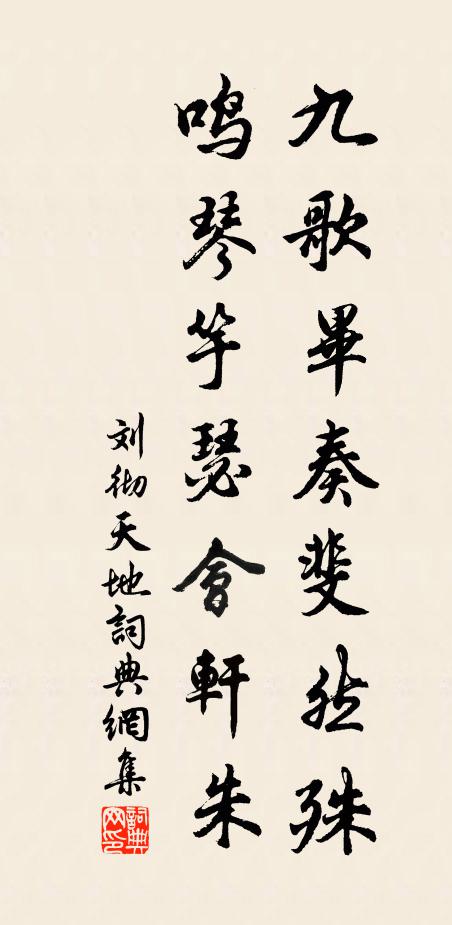 九歌畢奏斐然殊
鸣琴竽瑟會軒朱
刘彻天地詞典網集
詞典網印